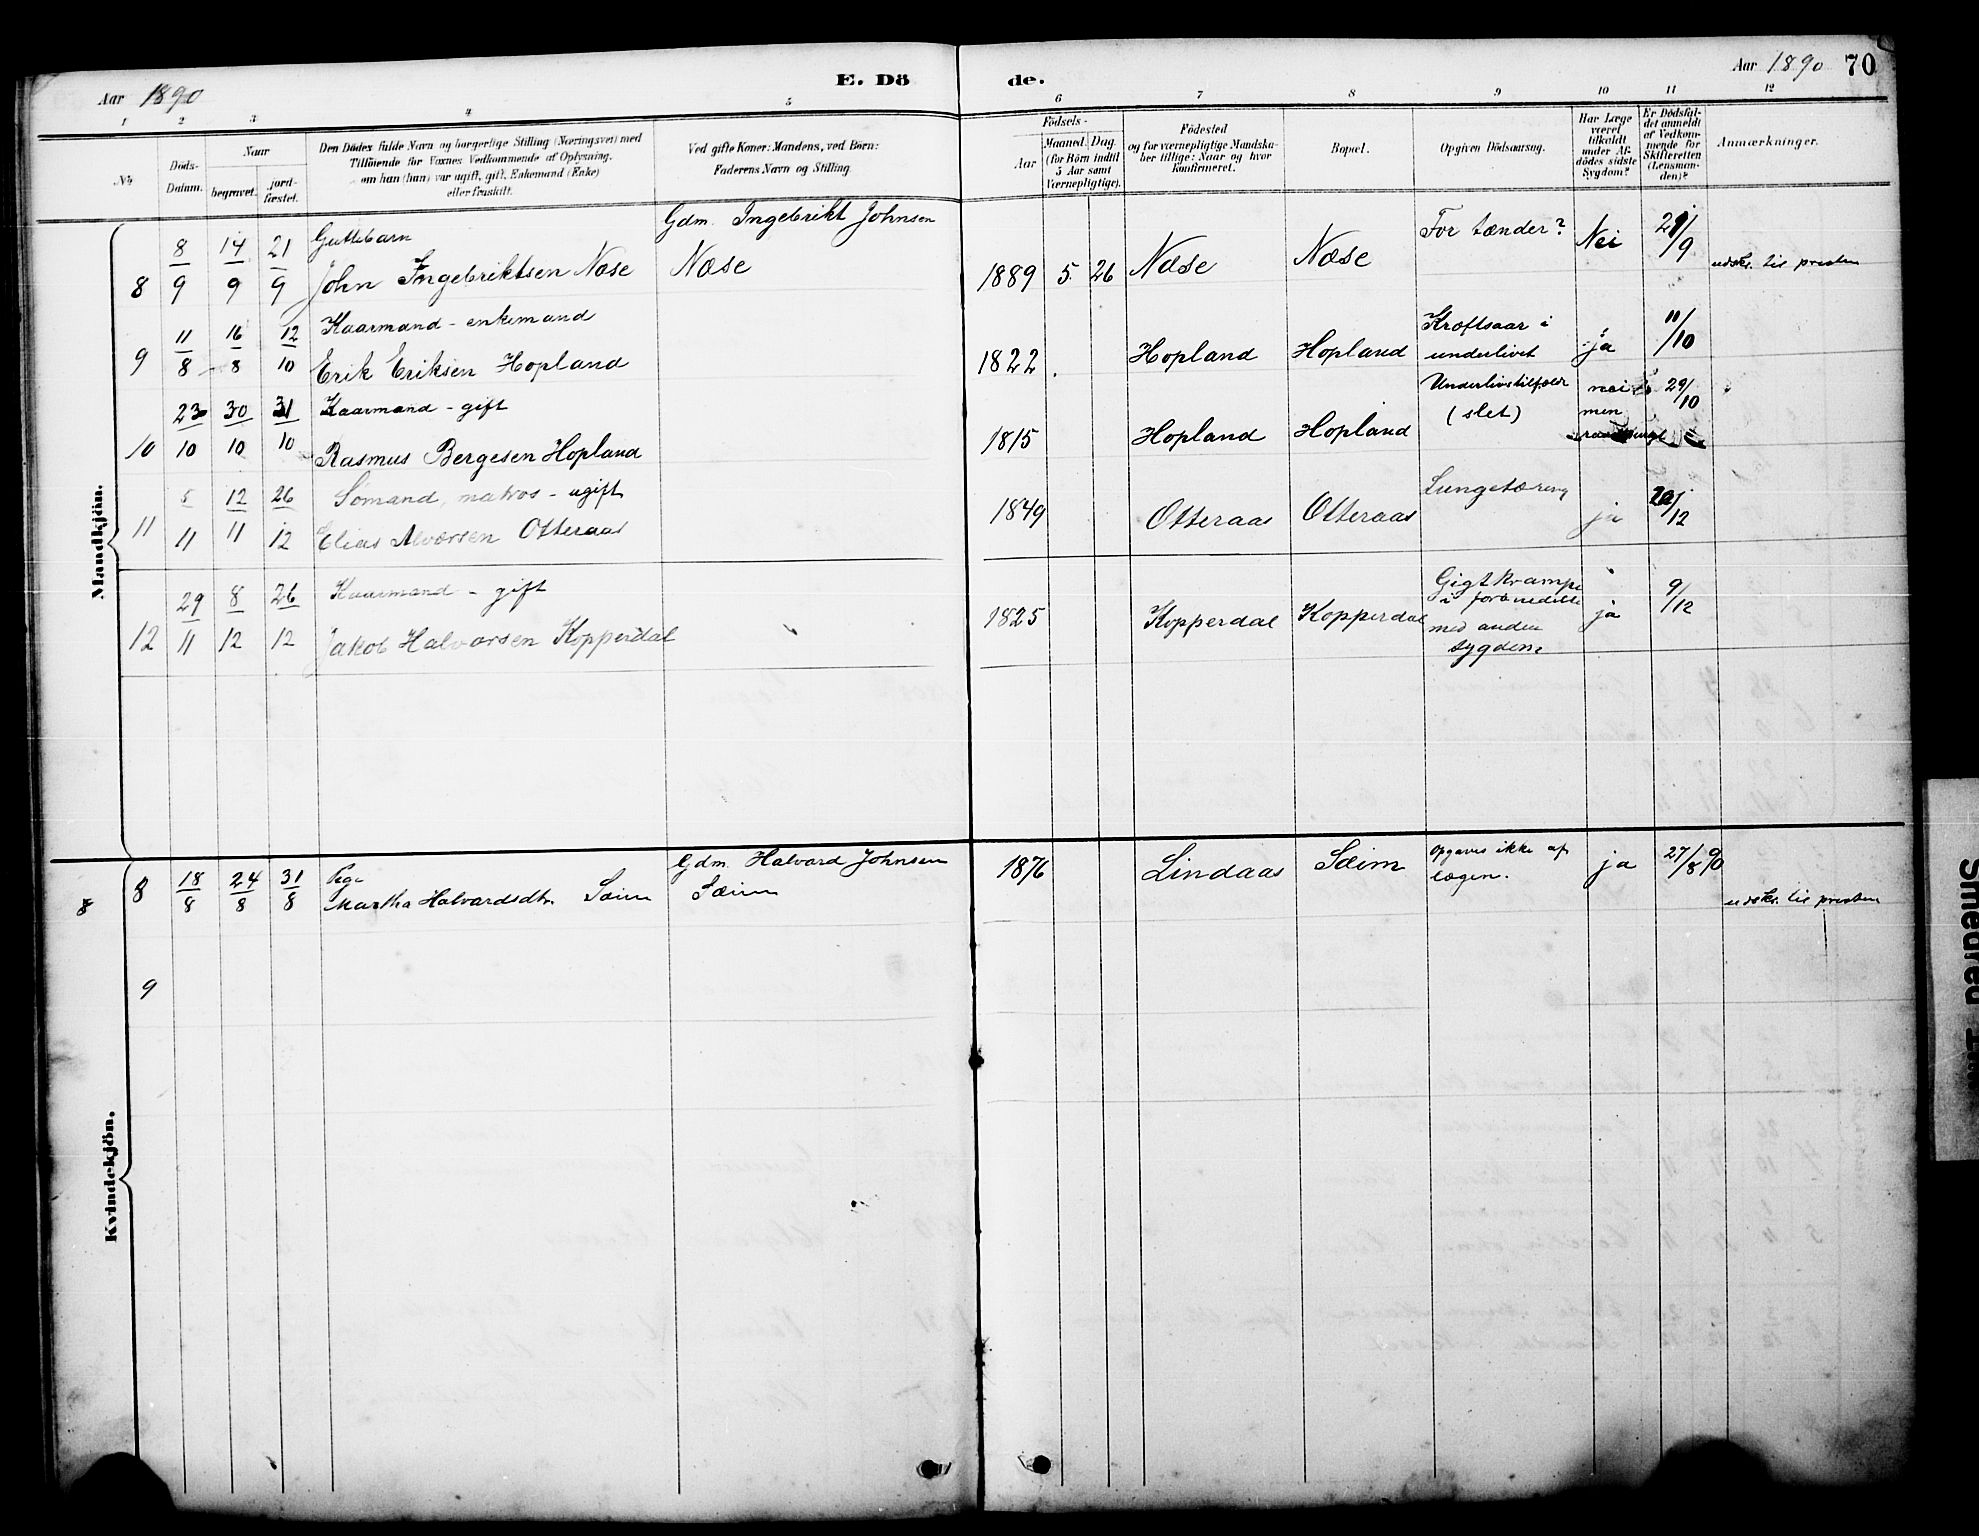 Aar 1890
E. Dö
de.
Aar 1890 70
1 2 3 4 5 6 7 8 9 10 11 12
No
Döds-
Datum.
Naar
begravet.
jord-
fæstet.
Den Dödes fulde Navn og borgerlige Stilling (Næringsvei) med
Tilföiende for Voxnes Vedkommende af Oplysning,
om han (hun) var ugift, gift, Enkemand (Enke)
eller fraskilt.
Ved gifte Koner: Mandens, ved Börn:
Faderens Navn og Stilling.
Födsels-
Aar
Maaned. Dag.
(for Börn indtil
5 Aar samt
Værnepligtige).
Födested
og for værnepligtige Mandska-
ber tillige: Naar og hvor
Konfirmeret.
Bopæl.
Opgiven Dödsaarsag.
Har Læge
været
tilkaldt
under Af-
dödes sidste
Sygdom?
Er Dödsfal-
det anmeldt
af Vedkom-
mende for
Skifteretten
(Lensman-
den)?
Anmærkninger.
Mandkjön.
8 8/9 14/9 21/9 Guttebarn
John Ingebriktsen Næse
Gdm. Ingebrikt Johnsen
Næse
1889 5 26 Næse Næse For tænder? Nei /9 udskr. til presten
9 11/8 16/8 12/10 Kaarmand - enkemand
Erik Eriksen Hopland
1822 Hopland Hopland Kræftsaar i
underlivet
ja 11/10
10 23/10 30/10 31/10 Kaarmand - gift
Rasmus Bergesen Hopland
1815 Hopland Hopland Underlivstilfælde
(slet)
nei
men
29/10
11 5/11 12/11 26/12 Sömand, matros - ugift
Elias Alversen Otteraas
1849 Otteraas Otteraas Lungetæring ja /12
12 29/11 8/12 26/12 Kaarmand - gift
Jakob Halvorsen Kopperdal
1825 Kopperdal Kopperdal Gigt krampe
i forbindelse
med anden
sygdom
ja 9/12
Kvindekjön.
8 8 18/8 24/8 31/8 Pige
Martha Halvardsdtr. Sæim
Gdm. Halvard Johnsen
Sæim
1876 Lindaas Sæim opgaves ikke af
lægen.
ja 27/8 90 udskr. til presten
9
Smedred